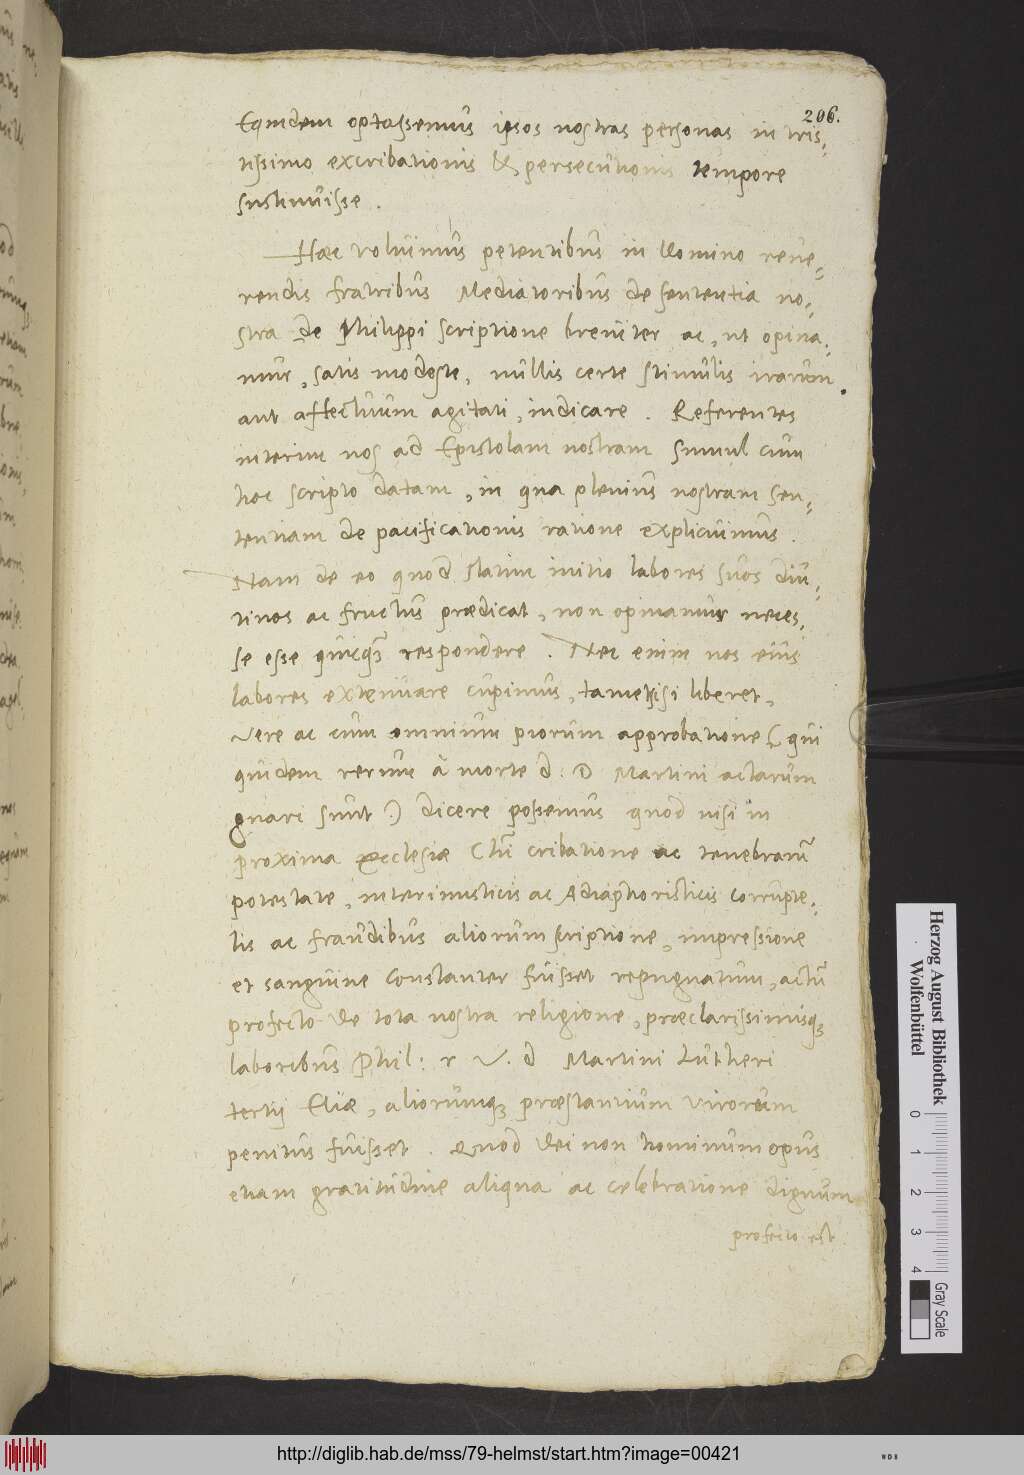 206.
Equidem optassemus ipsos nostras personas in tris-
tissimo excribationis & persecutionis tempore
sustinuisse.
Haec voluimus petentibus in Domino reue-
rendis fratribus Mediatoribus de sententia no-
stra de Philippi scriptione breuiter ac, ut opina-
mur, satis modeste, nullis certe stimulis irarum
aut affectuum agitati, indicare. Referentes
interim nos ad Epistolam nostram simul cum
hoc scripto datam, in qua plenius nostram sen-
tentiam de pacificationis ratione explicuimus.
Nam de eo quod statim initio labores suos diu-
tinos ac fructus prædicat, non opinamur neces-
se esse quicq; respondere. Nec enim nos eius
labores extenuare cupimus, tametsi si liberet,
vere ac cum omnium piorum approbatione (qui
quidem rerum à morte d. D Martini actarum
gnari sunt) dicere possemus quod nisi in
proxima Ecclesiæ Chri cribatione ac tenebrarū
potestate, interimisticis ac Adiaphoristicis corrupte-
lis ac fraudibus aliorum scriptione, impressione
et sanguine constanter fuisset repugnatum, actū
profecto de tota nostra religione, præclarissimisq;
laboribus Phil: r V. d Martini Lutheri
tertij Eliæ, aliorumq; præstantium virorum
penitus fuisset. Quod Dei non hominum opus
etiam gratitudine aliqua ac celebratione dignum
profecto est
Herzog August Bibliothek
Wolfenbüttel
0 1 2 3 4
Gray Scale
http://diglib.hab.de/mss/79-helmst/start.htm?image=00421